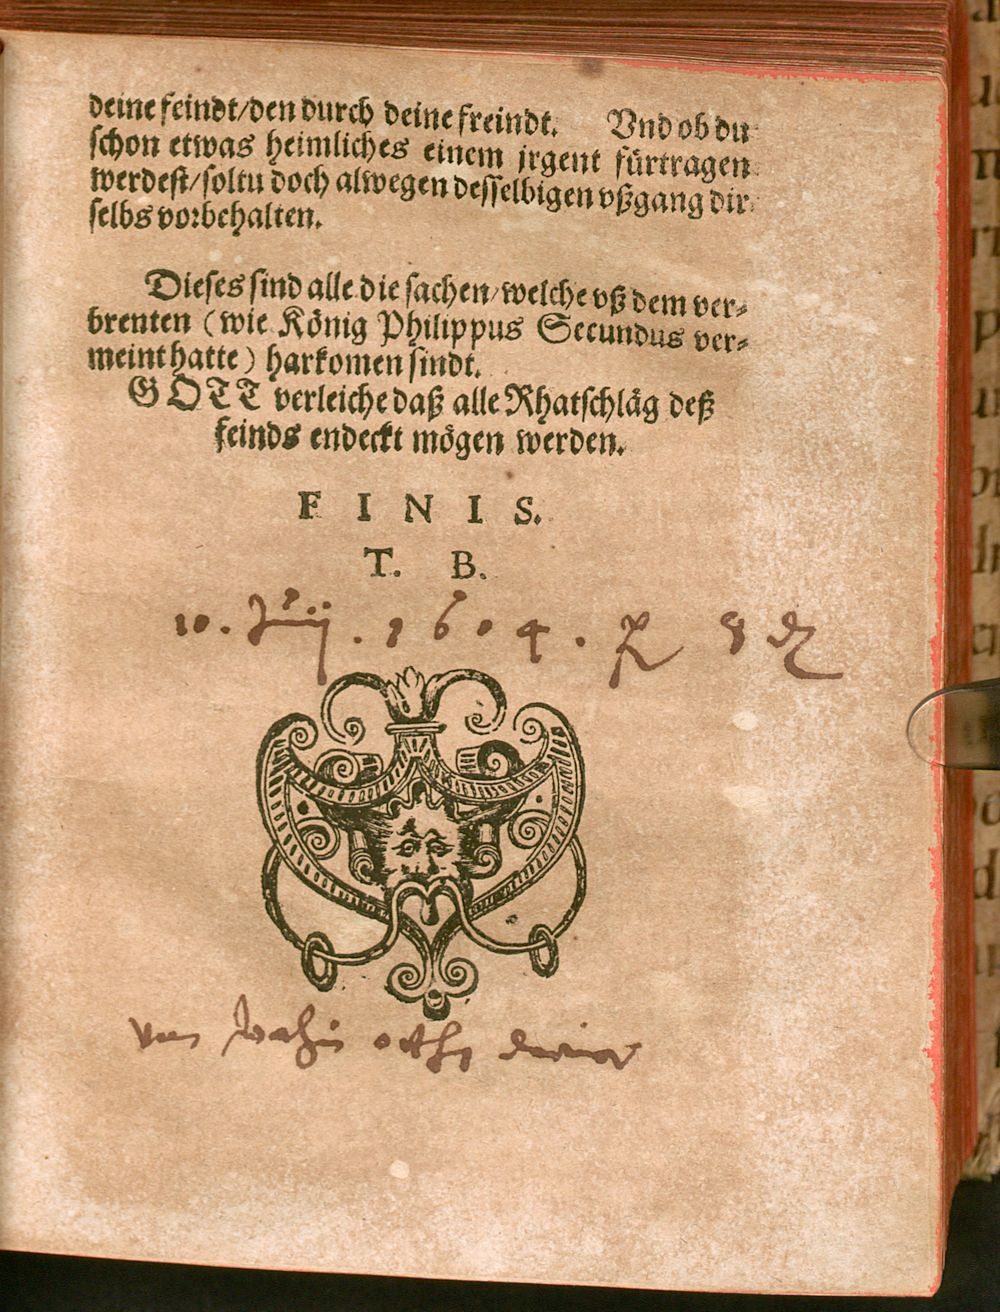 deine feindt/den durch deine freindt. Vnd ob du
schon etwas heimliches einem jrgent fürtragen
werdest/soltu doch alwegen desselbigen vßgang dir
selbs vorbehalten.
Dieses sind alle die sachen/welche vß dem ver-
brenten (wie König Philippus Secundus ver-
meint hatte) harkomen sindt.
GOTT verleiche daß alle Rhatschläg deß
feinds endeckt mögen werden.
FINIS.
T. B.
10. . 1604.